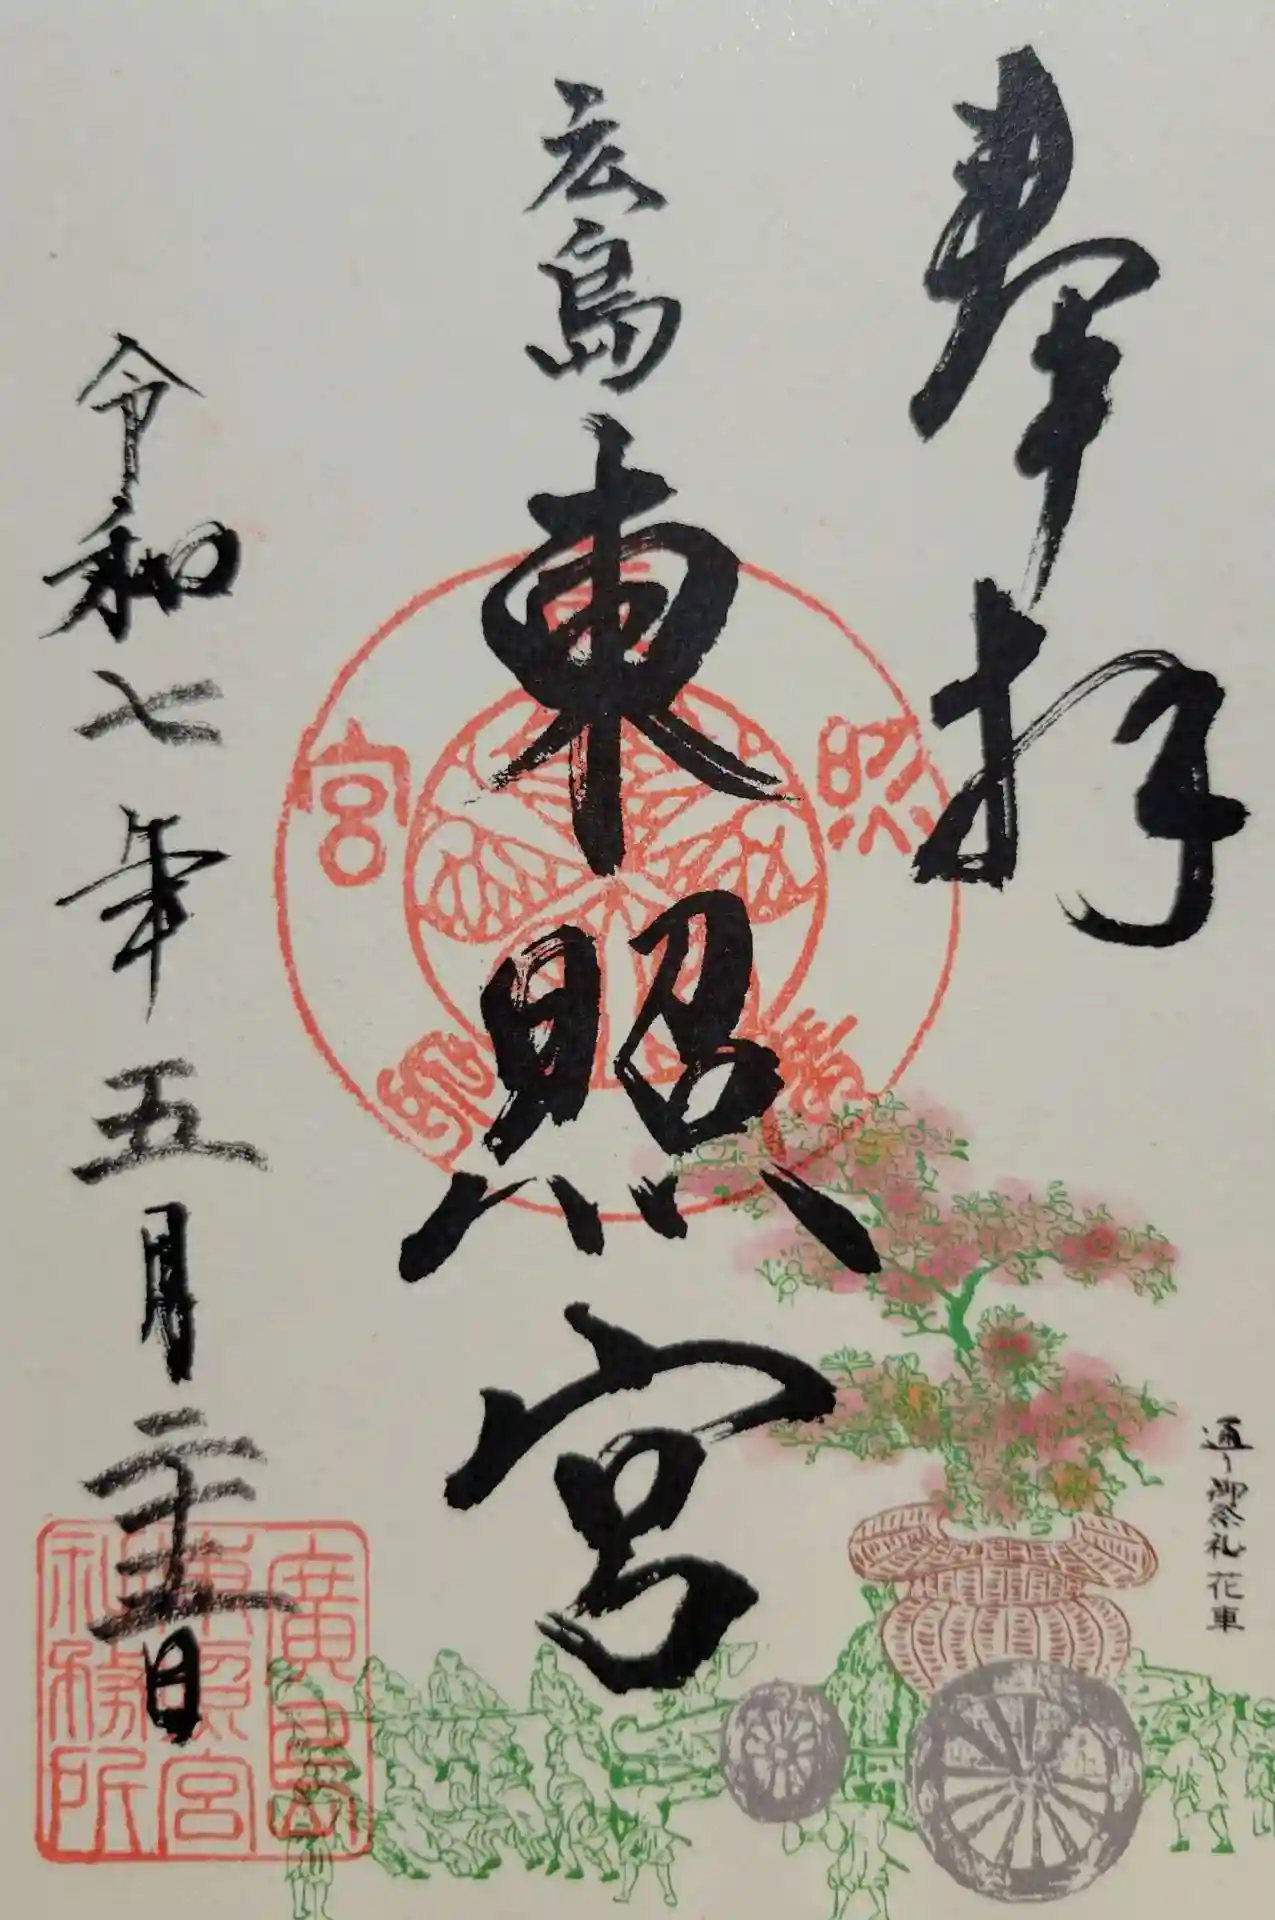 奉拝
通り御祭礼花車
広島
東照宮
東
照
宮
令和七年五月二十五日
廣島
東照宮
社務所